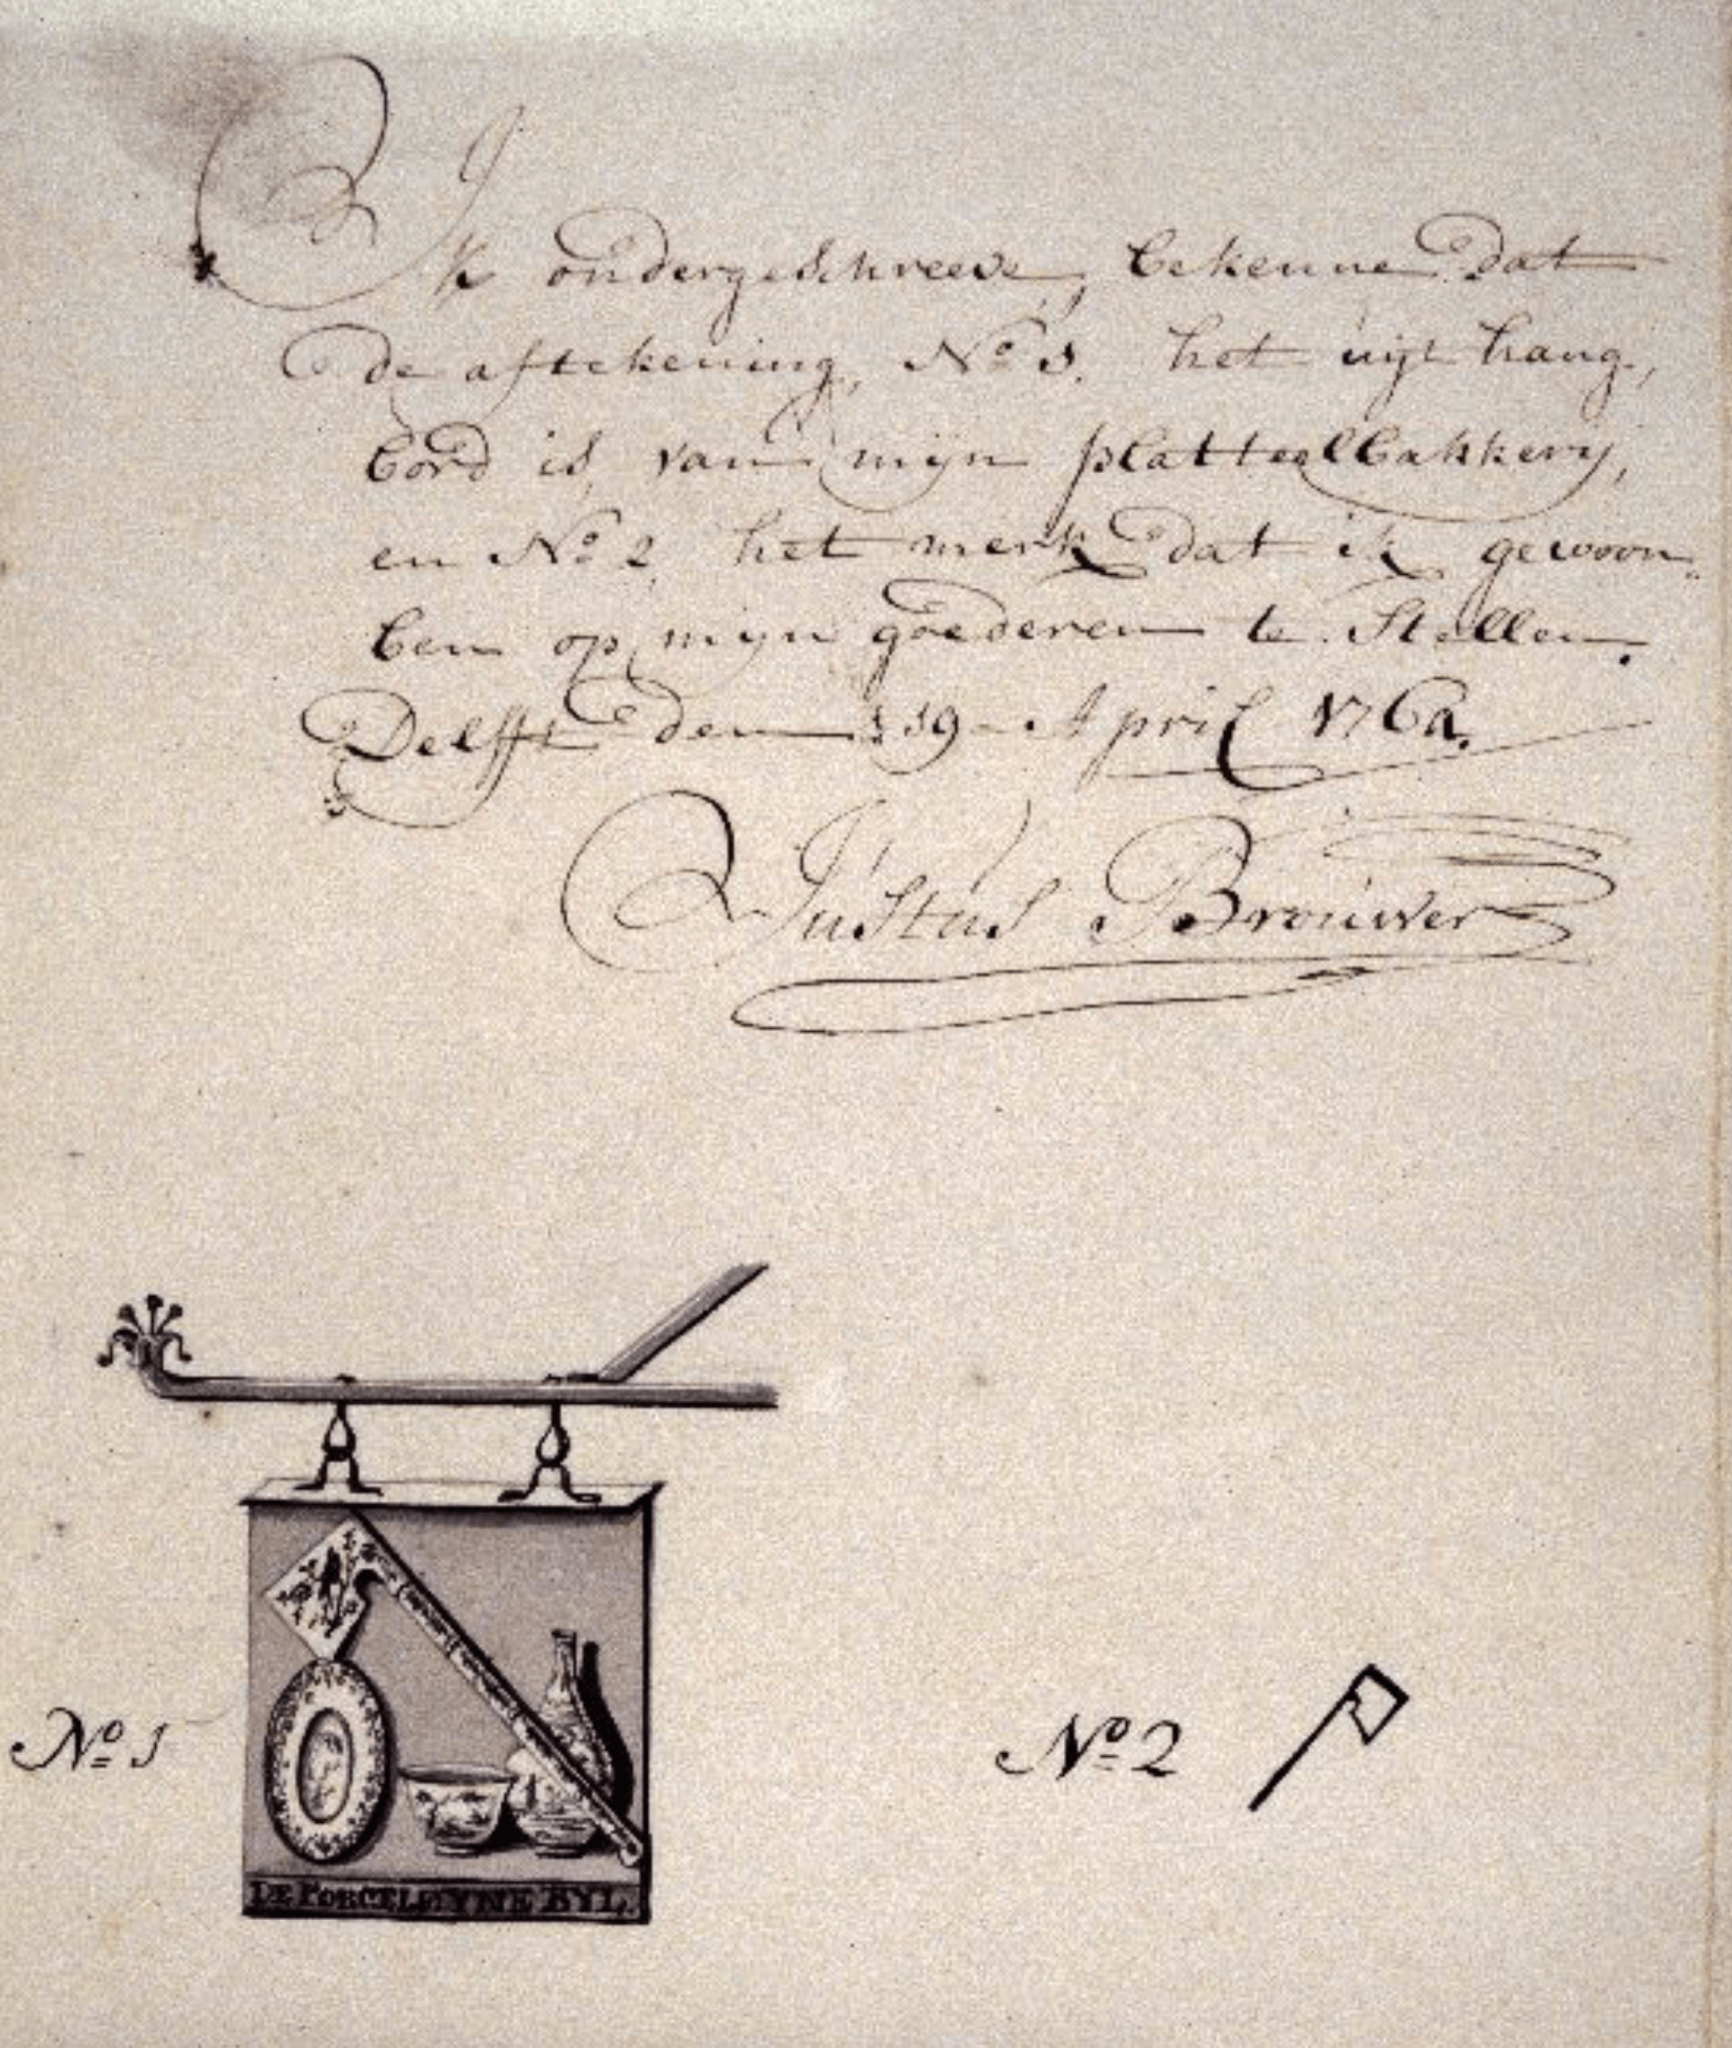 Ik ondergeschreeve, bekenne dat
de aftekening, No 1. het uijt hang,
bord is, van mijn platteelbakkery,
en No 2, het merk dat ik gewoon
ben op mijn goederen te Stellen.
Delfft den 19 - April 176
Justus Brouwer
No 1
DE PORCELEYNE BYL.
No 2